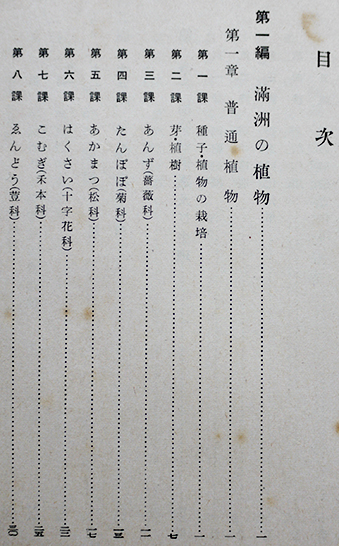 目次
第一編 滿洲の植物……一
第一章 普通植物……一
第一課 種子・植物の栽培……一
第二課 芽・植樹……七
第三課 あんず(薔薇科)……一一
第四課 たんぽぽ(菊科)……一三
第五課 あかまつ(松科)……一七
第六課 はくさい(十字花科)……二三
第七課 こむぎ(禾本科)……二五
第八課 ゑんどう(荳科)……三〇